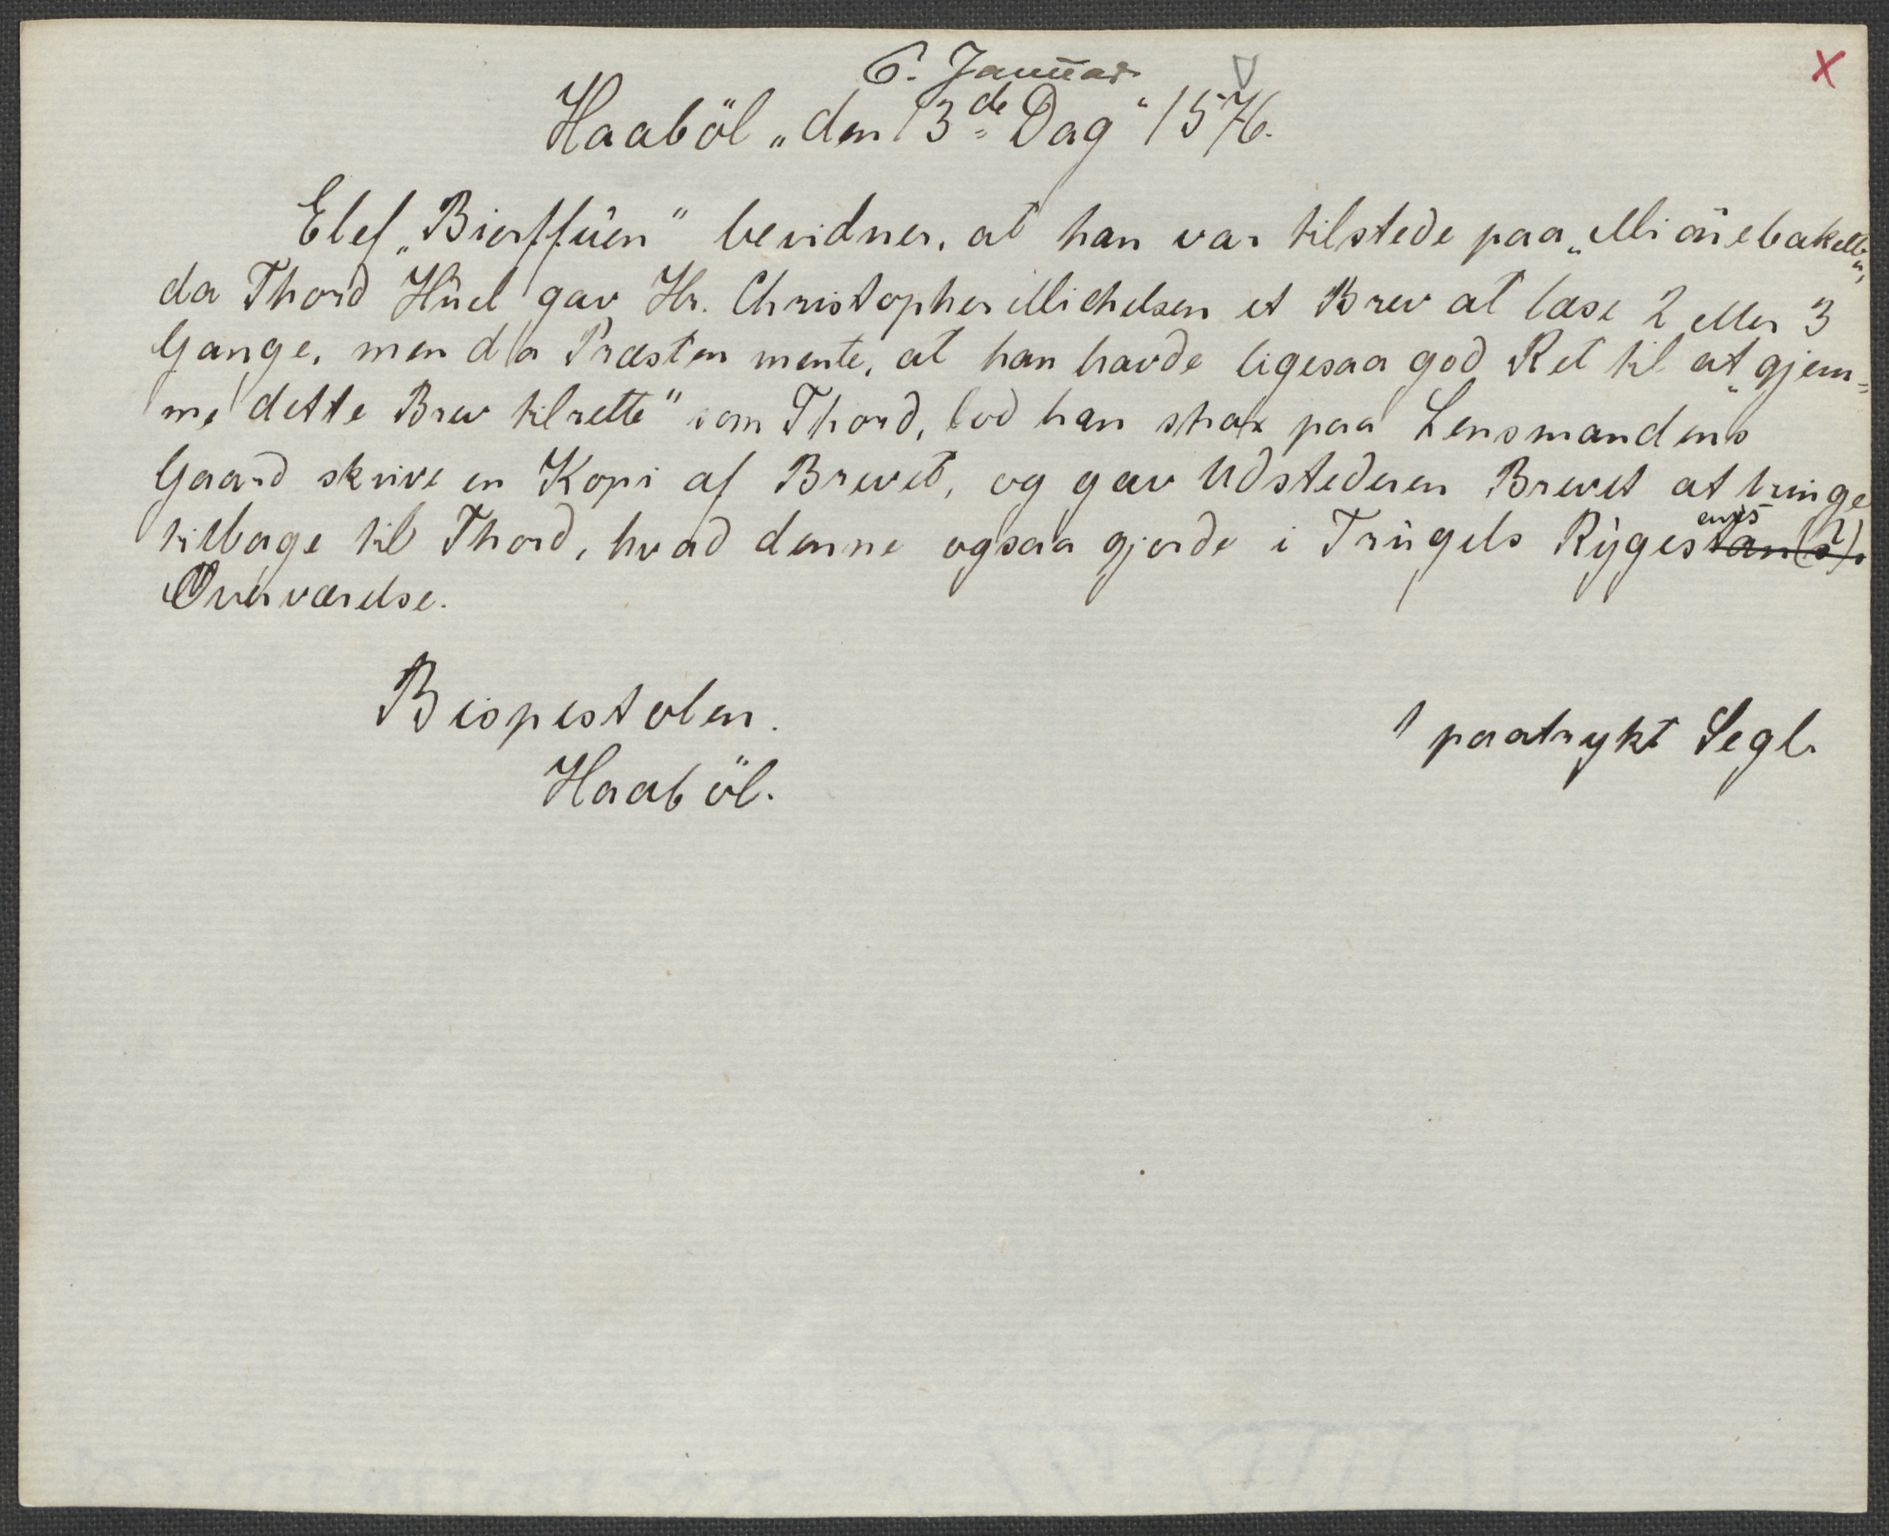 6. Januar
Haaböl „den 13de Dag“ 1576.
X
Elef „Bierffüen“ bevidner, at han var tilstede paa
da Thord Hüel gav Hr. Christopher Michelsen et Brev at læse 2 eller 3
Gange, men da Præsten mente, at han havde ligesaa god Ret til at „gjem=
me dette Brev tilrette“ som Thord, lod han strax paa Lensmandens
Gaard skrive en Kopi af Brevet, og gav Udstederen Brevet at bringe
tilbage til Thord, hvad denne ogsaa gjorde i Trügels
Overværelse.
Bispestolen.
1 paatrykt Segl.
Haaböl.